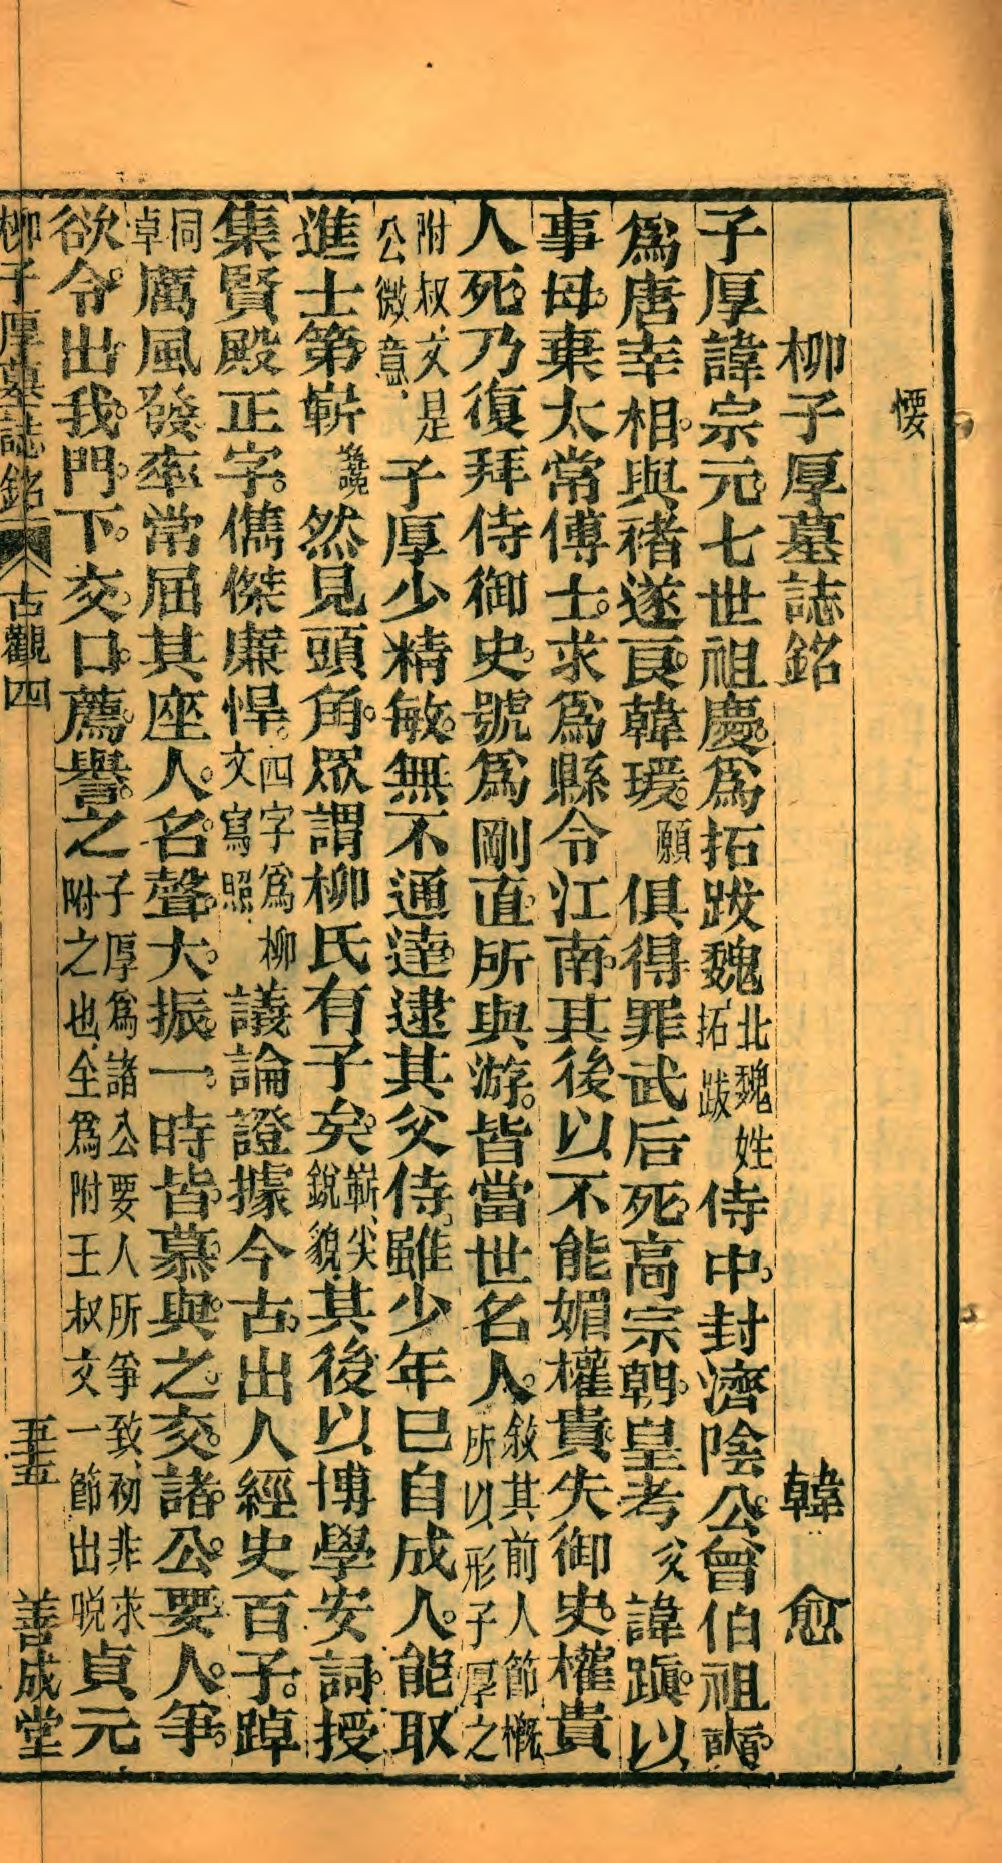 柳子厚墓誌銘　韓愈
子厚諱宗元七世祖慶爲拓跋魏北魏姓拓跋侍中封濟陰公曾伯祖奭
爲唐宰相與褚遂良韓瑗願俱得罪武后死高宗朝皇考父諱蹎以
事母棄太常博士求爲縣令江南其後以不能媚權貴失御史權貴
人死乃復拜侍御史號爲剛直所與游皆當世名人敘其前人節概所以形子厚之
附叔文是公微意子厚少精敏無不通達逮其父侍雖少年已自成人能取
進士第嶄然見頭角眾謂柳氏有子矣嶄尖銳貌其後以博學安詞授
集賢殿正字儁傑廉悍四字爲柳文寫照議論證據今古出人經史百子踔
同卓厲風發率常屈其座人名聲大振一時皆慕與之交諸公要人爭
欲令出我門下交口薦譽之子厚爲諸公要人所爭致初非求附之也全爲附王叔文一節出脫貞元
柳子厚墓誌銘　古觀四　五五　善成堂